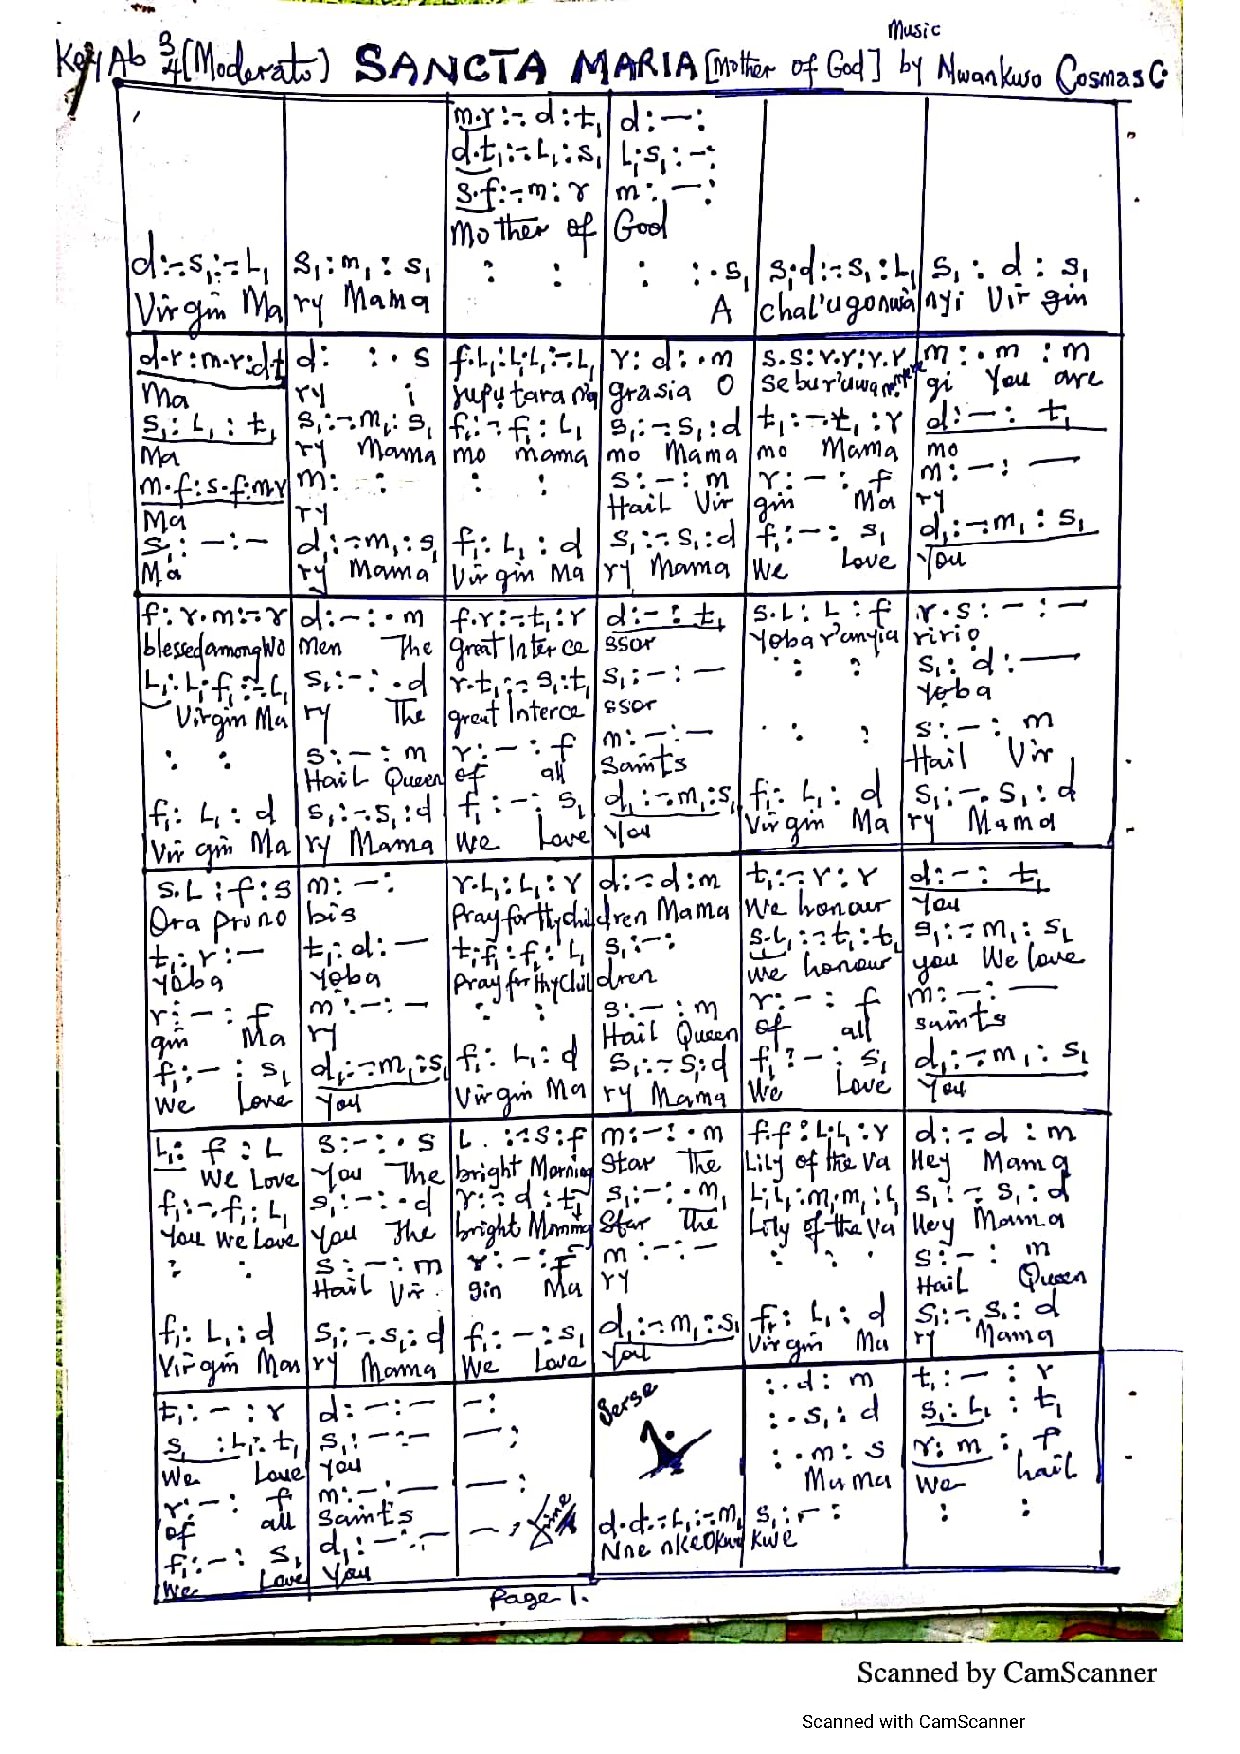 Music
Key Ab 3/4 (Moderato) SANCTA MARIA [Mother of God] by Nwankwo Cosmas C.
m.r:-.d:t₁ d:—:
d.t₁:-.L₁:s₁ L₁.s₁:-:
s.f:-m:r m:—:
Mother of God
d:-.s₁:-.L₁ s₁:m₁:s₁ : : : :.s₁ s₁.d:-.s₁:L₁ s₁:d:s₁
Virgin Ma ry Mama A chal'ugonwa nyi Virgin
d.r:m.r:dt₁ d: :.s f.L₁:L₁.L₁:-.L₁ r:d:.m s.s:r.r:r.r m:.m:m
Ma ry i juputara na grasia O se bur'uwa gi You are
s₁:L₁:t₁ s₁:-.m₁:s₁ f₁:-f₁:L₁ s₁:-.s₁:d t₁:-t₁:r d:—:t₁
Ma ry Mama mo mama mo Mama mo Mama mo
m.f:s.f:m.r m: : : : s:—:m r:—:f m:—:—
Ma ry Hail Vir gin Ma ry
s₁:—:— d₁:-.m₁:s₁ f₁:L₁:d s₁:-.s₁:d f₁:—:s₁ d₁:-.m₁:s₁
Ma ry Mama Virgin Ma ry Mama We Love You
f:r.m:-.r d:—:.m f.r:-.t₁:r d:—:t₁ s.L:L:f r.s:—:—
blessed among Wo men The great Interce ssor Yoba r'anyia ririo
L₁:L₁.f₁:-.L₁ s₁:-:.d r.t₁:-.s₁:t₁ s₁:—:— : : s₁:d:—
Virgin Ma ry The great Interce ssor Yoba
: : s:—:m r:—:f m:—:— : : s:—:m
Hail Queen of all Saints Hail Vir
f₁:L₁:d s₁:-.s₁:d f₁:—:s₁ d₁:-.m₁:s₁ f₁:L₁:d s₁:-.s₁:d
Virgin Ma ry Mama We Love You Virgin Ma ry Mama
s.L:f:s m:—: r.L₁:L₁:r d:-.d:m t₁:-.r:r d:—:t₁
Ora pro no bis Pray for thy children Mama We honour You
t₁:r:— t₁:d:— t₁.f₁:f₁:L₁ s₁:—: s.L₁:-.t₁:t₁ s₁:-.m₁:s₁
Yoba Yoba Pray for thy children we honour you We love
r:—:f m:—:— : : s:—:m r:—:f m:—:—
gin Ma ry Hail Queen of all saints
f₁:—:s₁ d₁:-.m₁:s₁ f₁:L₁:d s₁:-.s₁:d f₁:—:s₁ d₁:-.m₁:s₁
We Love You Virgin Ma ry Mama We Love You
L₁:f:L s:—:.s L.:-.s:f m:—:.m f.f:L₁.L₁:r d:-.d:m
We Love You The bright Morning Star The Lily of the Va Hey Mama
f₁:-.f₁:L₁ s₁:—:.d r:-.d:t₁ s₁:—:.m₁ L₁.L₁:m₁.m₁:L₁ s₁:-.s₁:d
You We Love You The bright Morning Star The Lily of the Va Hey Mama
: : s:—:m r:—:f m:—:— : : s:—:m
Hail Vir gin Ma ry Hail Queen
f₁:L₁:d s₁:-.s₁:d f₁:—:s₁ d₁:-.m₁:s₁ f₁:L₁:d s₁:-.s₁:d
Virgin Ma ry Mama We Love You Virgin Ma ry Mama
t₁:—:r d:—:— —: Serse :.d:m t₁:—:r
s₁:L₁:t₁ s₁:—:— —: :.s₁:d s₁:L₁:t₁
We Love You
r:—:f m:—:— —: :.m:s r:m:f
of all Saints Mama We hail
f₁:—:s₁ d₁:—:— —: fine d.d:-.L₁:-.m₁ s₁:—: : :
We Love You Nne nke Okwu Kwe
Page 1.
Scanned by CamScanner
Scanned with CamScanner